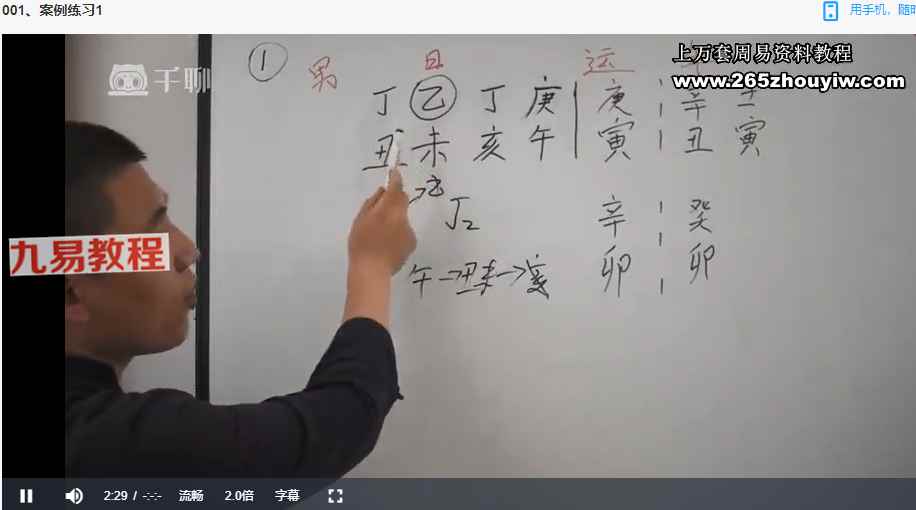 001、案例练习1
用手机，随时
千聊
上万套周易资料教程
www.265zhouyiw.com
① 男 日 运
丁 乙 丁 庚 庚 辛 壬
丑 未 亥 午 寅 丑 寅
丁 辛 癸
卯 卯
午→丑未→亥
九易教程
2:29 / -:-:-
流畅
2.0倍
字幕